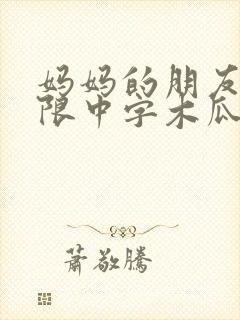 妈妈的朋友
限中字木瓜
萧敬騰